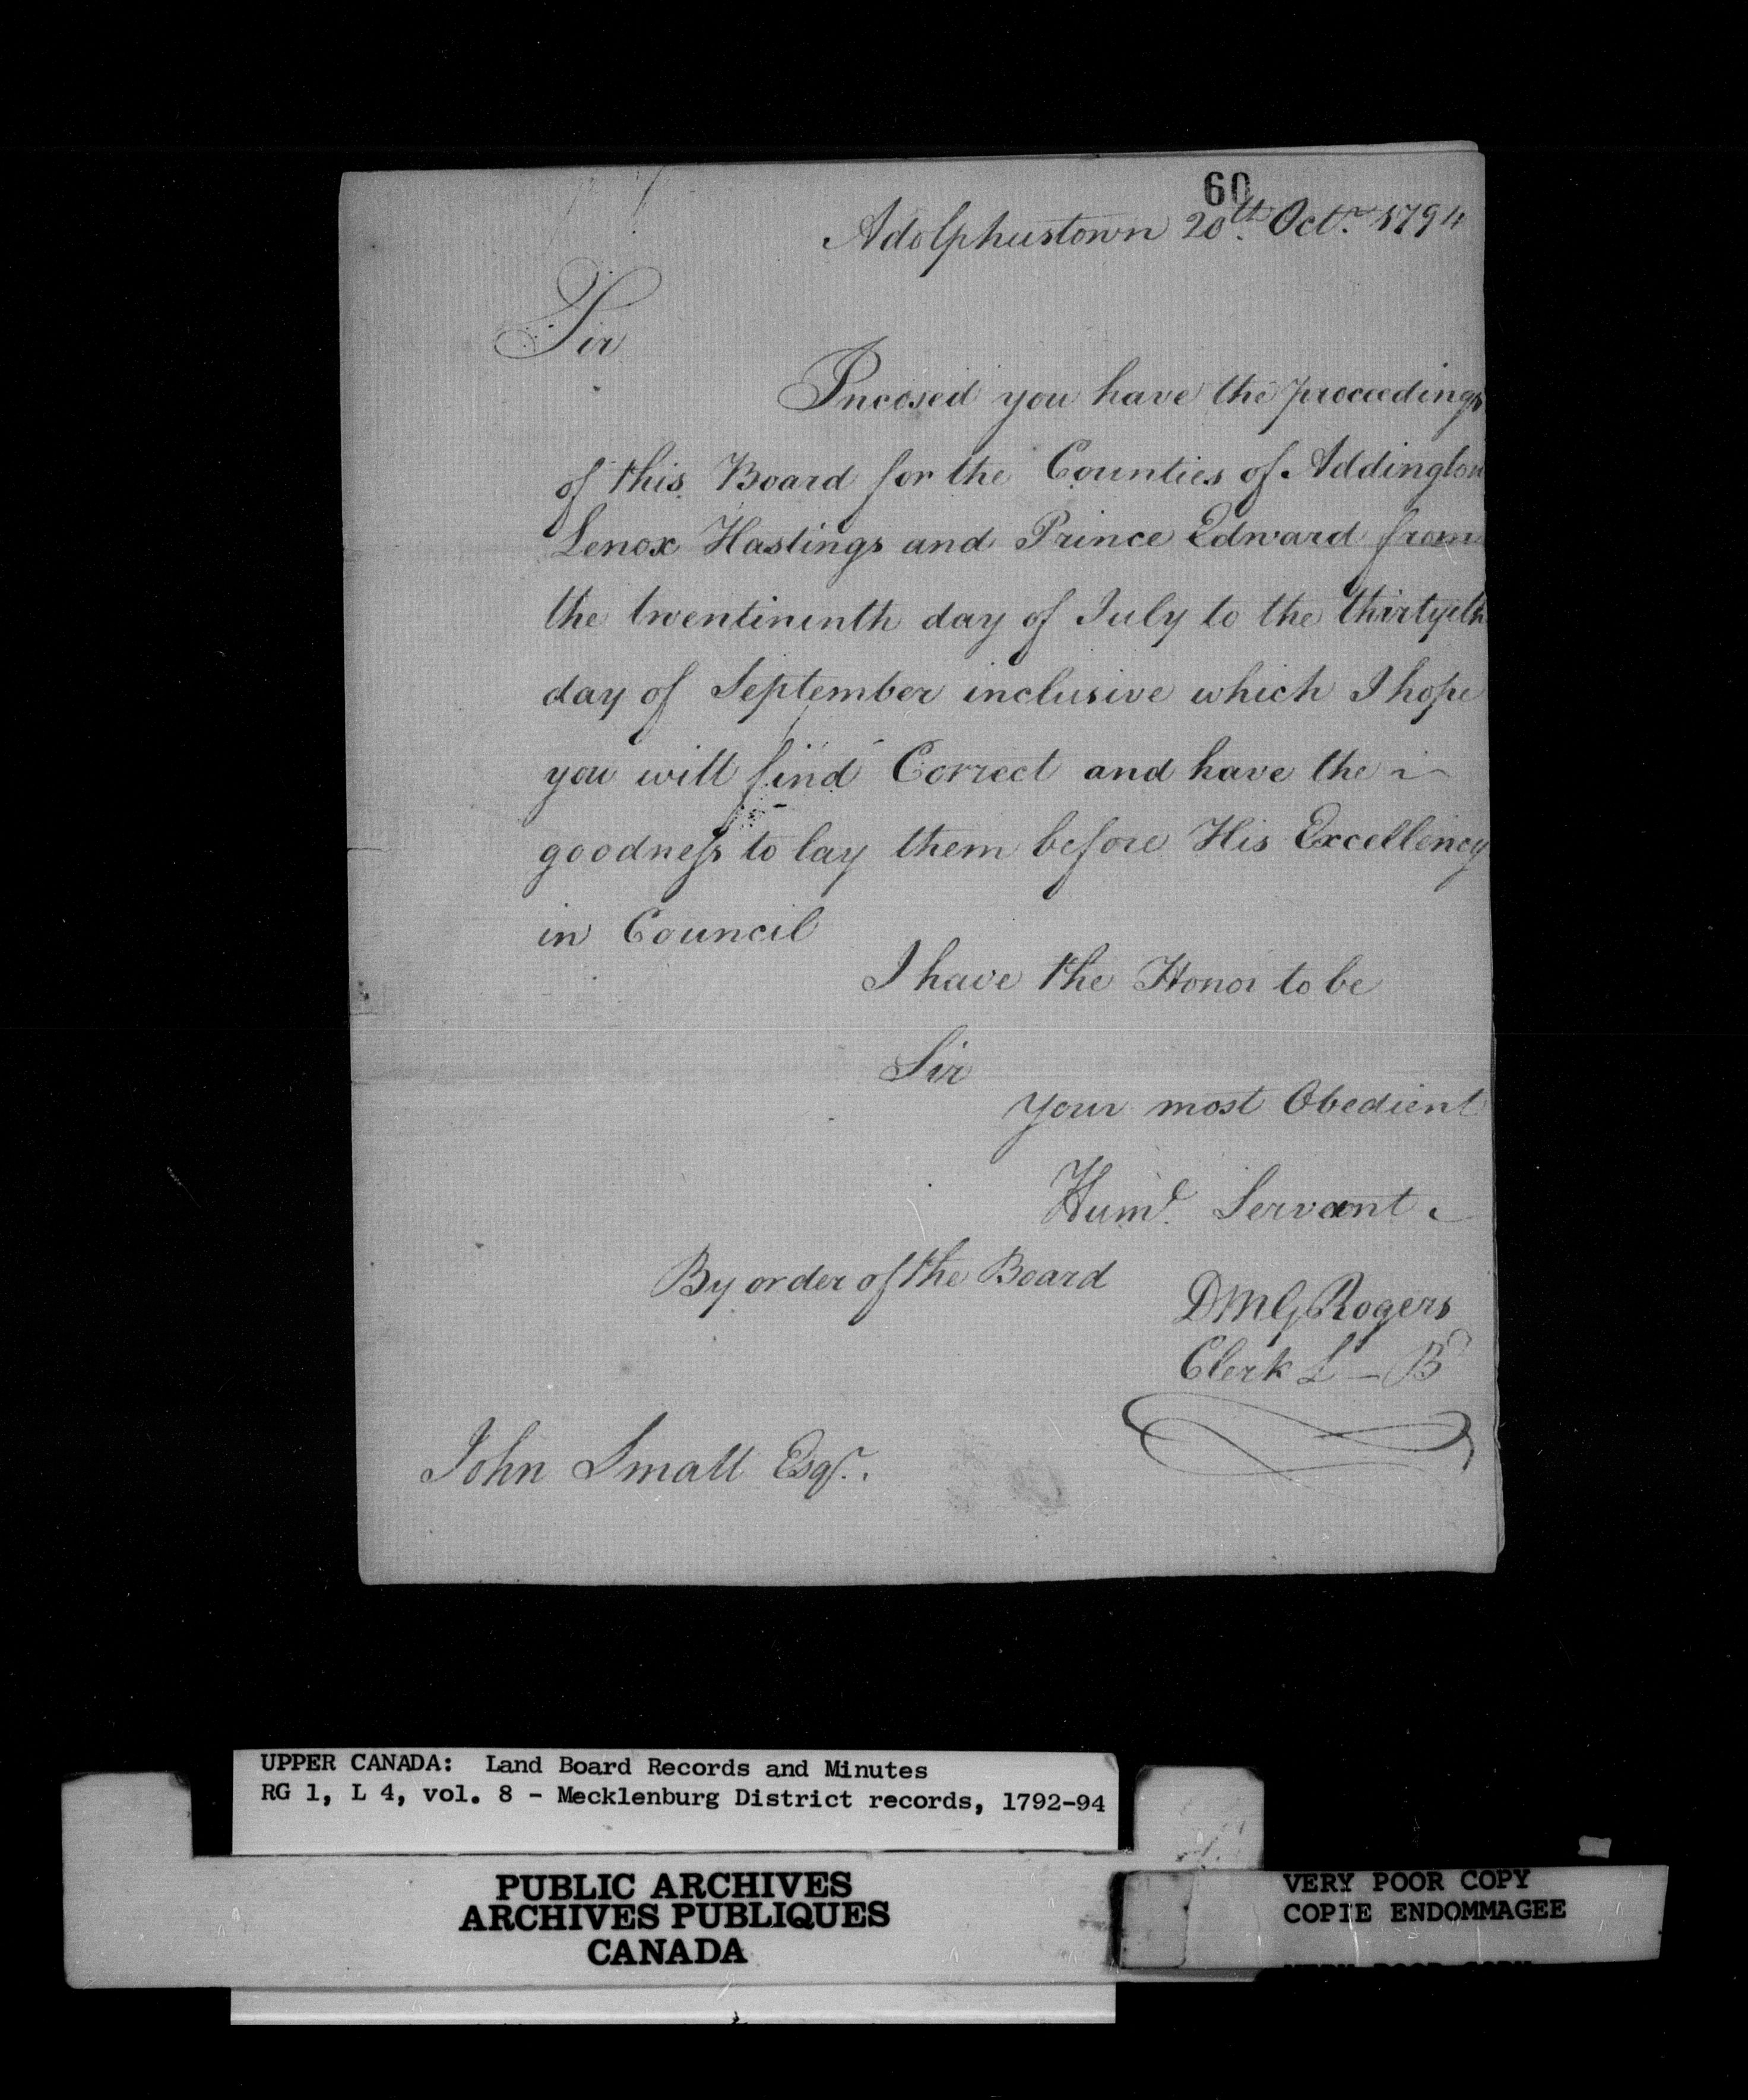 60
Adolphustown 20th. Octr. 1794
Sir
Incosed you have the proceedings
of this Board for the Counties of Addington
Lenox Hastings and Prince Edward from
the twentininth day of July to the thirtyeth
day of September inclusive which I hope
you will find Correct and have the
goodness to lay them before His Excellency
in Council
I have the Honor to be
Sir
your most Obedient
Hume. Servant
By order of the Board
DMG Rogers
Clerk L - B
John Small Esqr.
UPPER CANADA: Land Board Records and Minutes
RG 1, L 4, vol. 8 - Mecklenburg District records, 1792-94
PUBLIC ARCHIVES
ARCHIVES PUBLIQUES
CANADA
VERY POOR COPY
COPIE ENDOMMAGEE